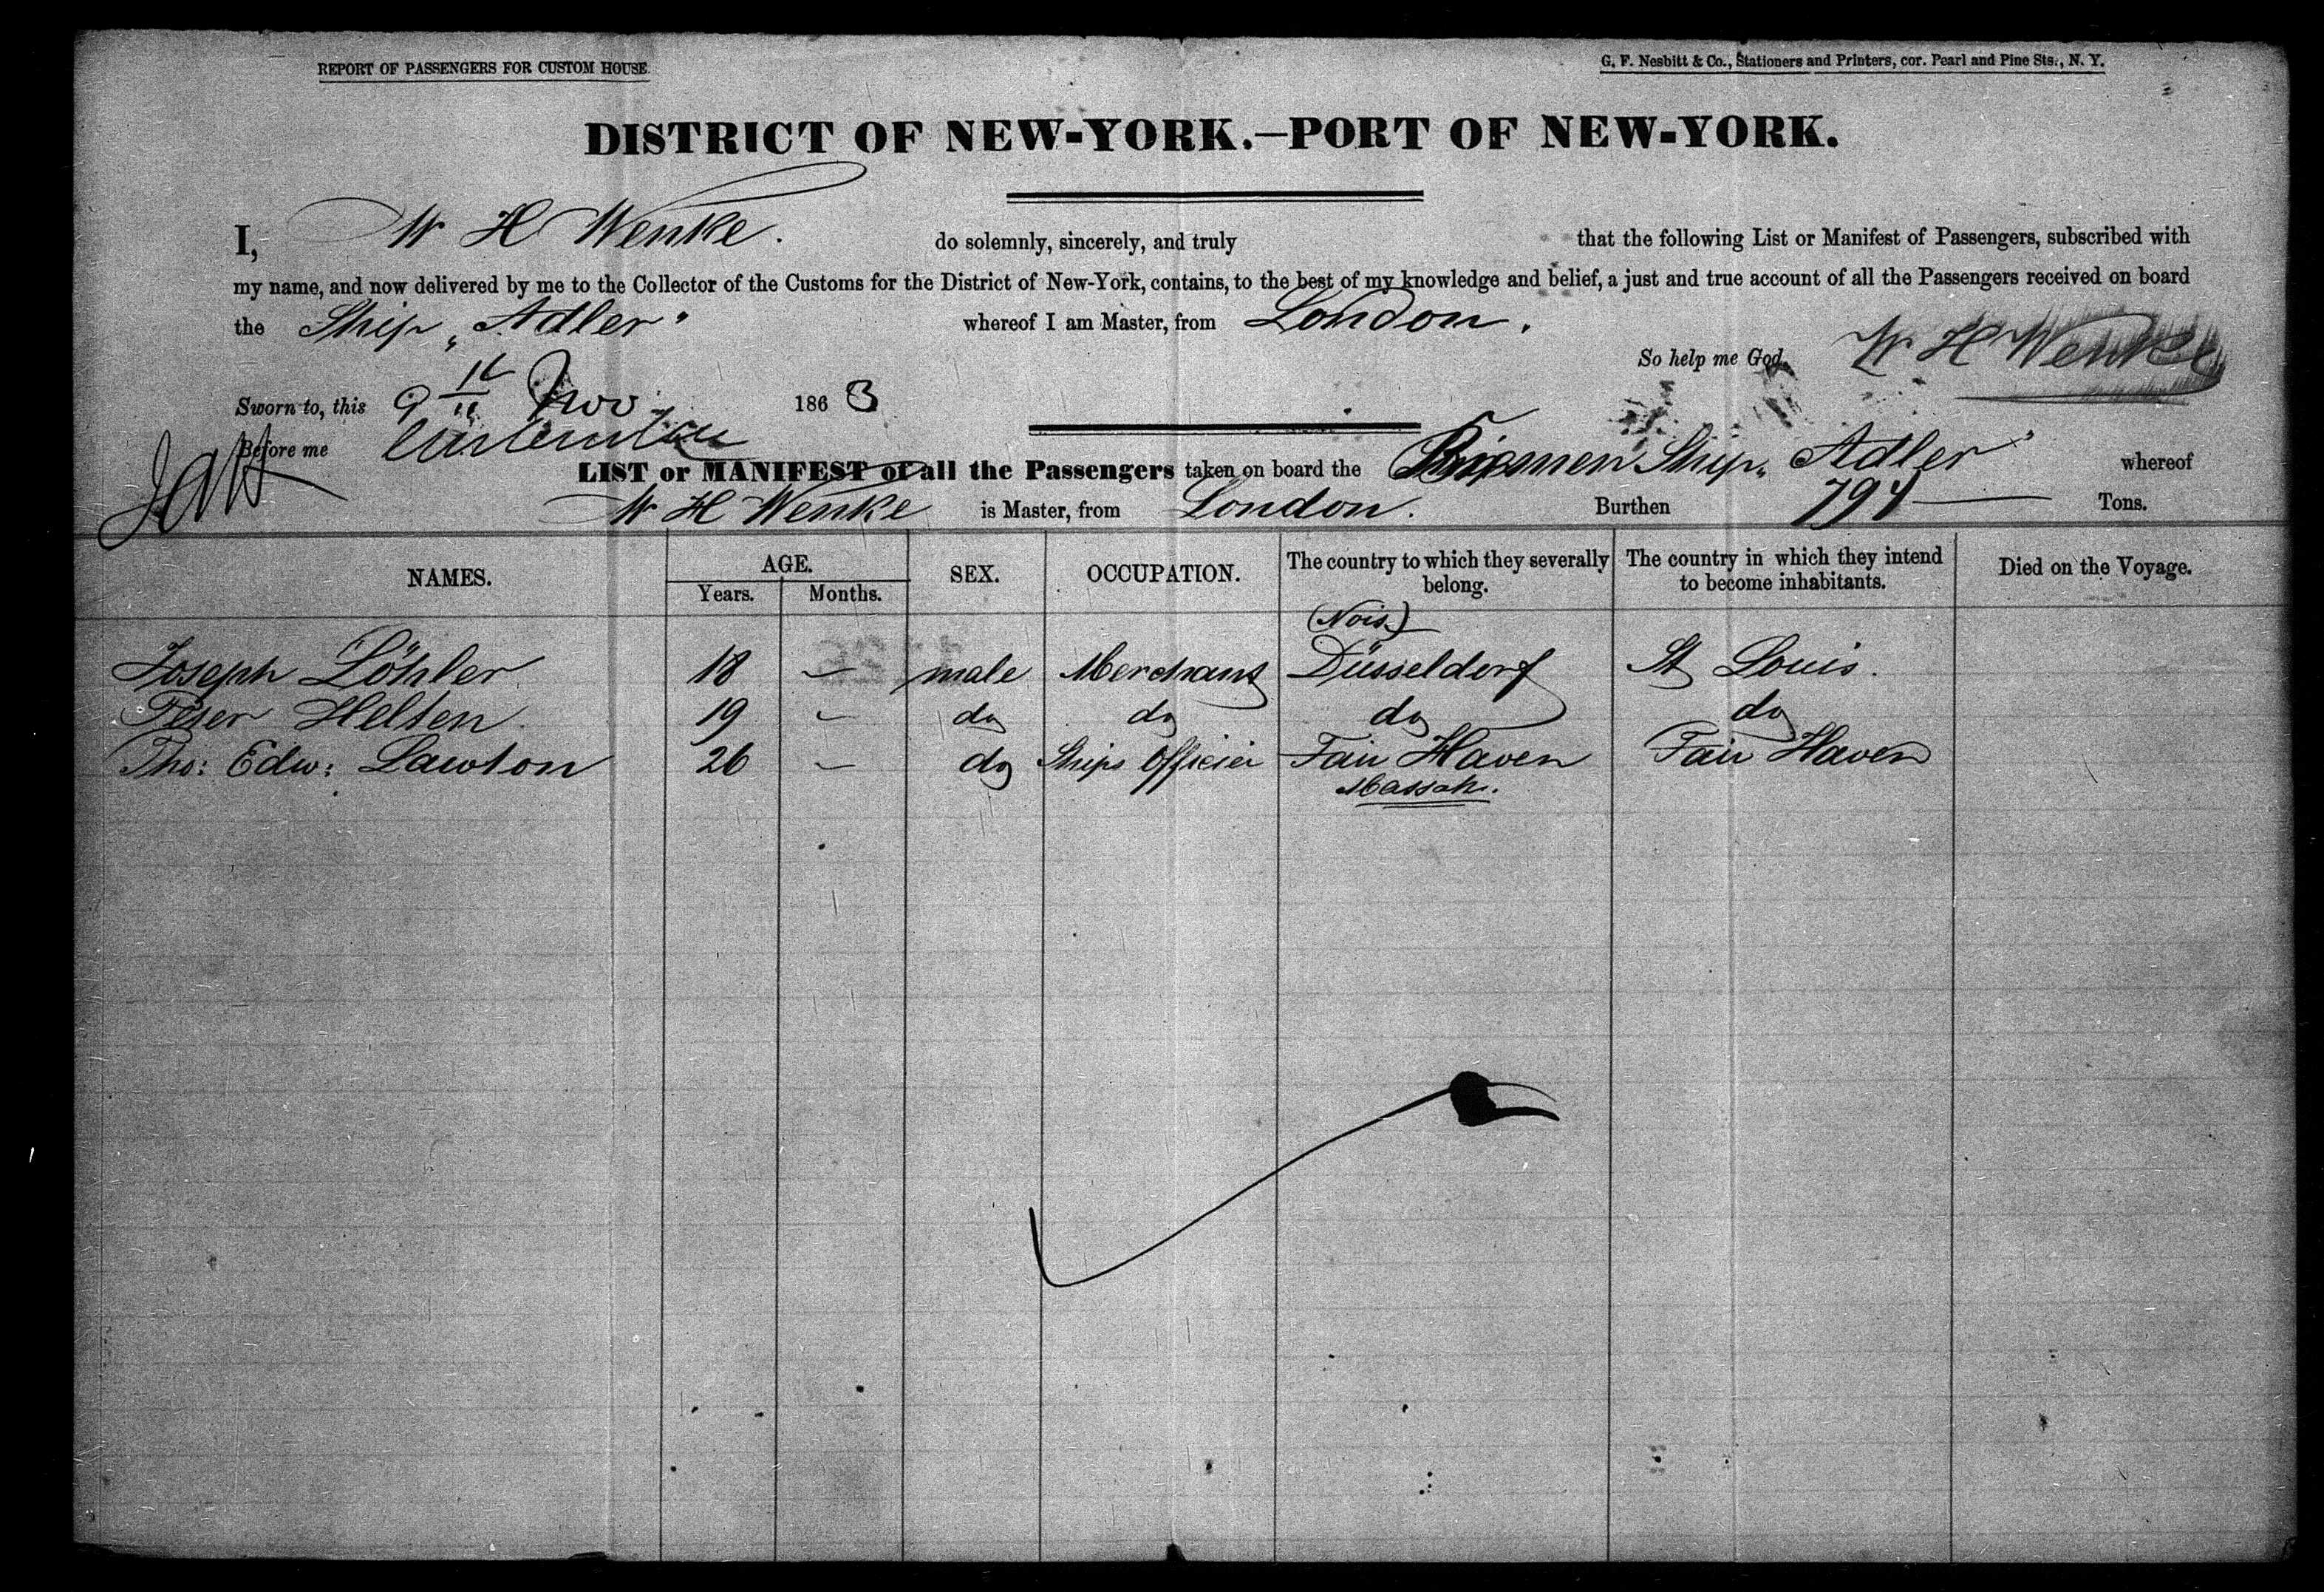 REPORT OF PASSENGERS FOR CUSTOM HOUSE.
G. F. Nesbitt & Co., Stationers and Printers, cor. Pearl and Pine Sts., N. Y.
DISTRICT OF NEW-YORK.—PORT OF NEW-YORK.
I, W H Wenke. do solemnly, sincerely, and truly that the following List or Manifest of Passengers, subscribed with
my name, and now delivered by me to the Collector of the Customs for the District of New-York, contains, to the best of my knowledge and belief, a just and true account of all the Passengers received on board
the Ship „Adler" whereof I am Master, from London.
So help me God, W H Wenke
Sworn to, this 9 Nov 1863
Before me
LIST or MANIFEST of all the Passengers taken on board the Bremen Ship „Adler" whereof
W H Wenke is Master, from London. Burthen 794 Tons.
NAMES. AGE. Years. Months. SEX. OCCUPATION. The country to which they severally belong. The country in which they intend to become inhabitants. Died on the Voyage.
Joseph Löhler 18 — male Merchant Düsseldorf St Louis.
Peter Helten 19 — do do do do
Tho: Edw: Lawton 26 — do Ships Officier Fair Haven Fair Haven
Massah.